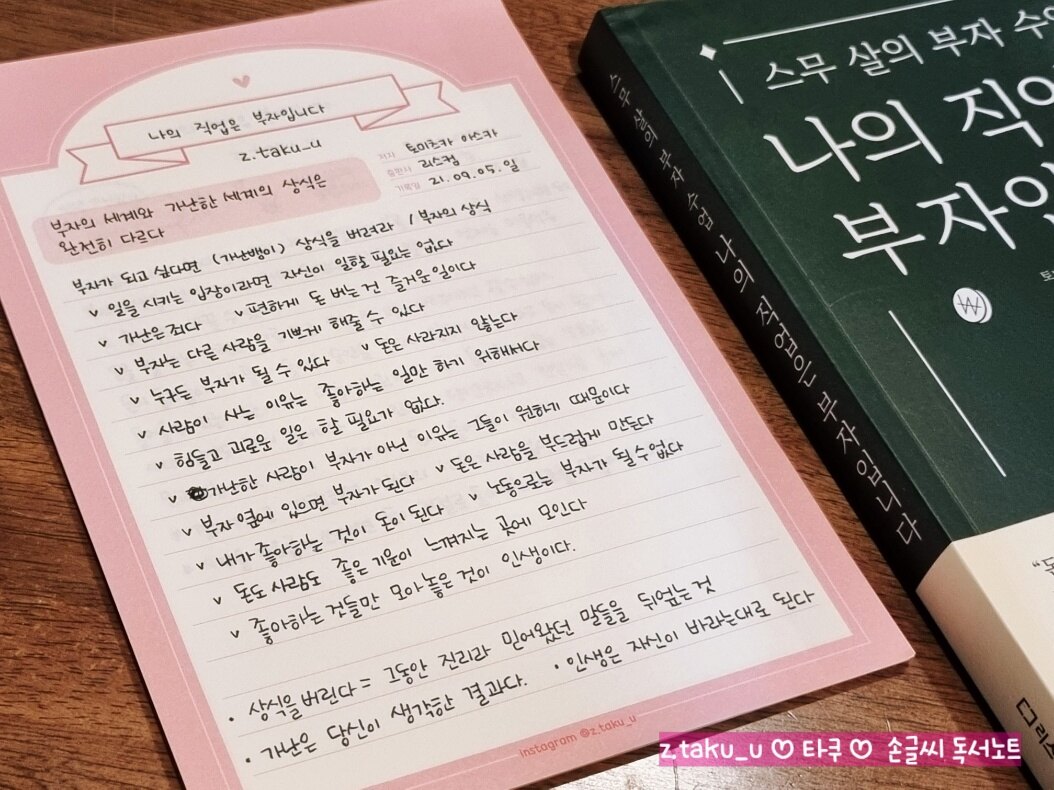 나의 직업은 부자입니다
z.taku_u
저자 토미츠카 아스카
출판사 리스컴
기록일 21.09.05. 일
부자의 세계와 가난한 세계의 상식은
완전히 다르다
부자가 되고 싶다면 (가난뱅이) 상식을 버려라 / 부자의 상식
v 일을 시키는 입장이라면 자신이 일할 필요는 없다
v 가난은 죄다 v 편하게 돈 버는 건 즐거운 일이다
v 부자는 다른 사람을 기쁘게 해줄 수 있다
v 누구든 부자가 될 수 있다 v 돈은 사라지지 않는다
v 사람이 사는 이유는 좋아하는 일만 하기 위해서다
v 힘들고 괴로운 일은 할 필요가 없다.
v 가난한 사람이 부자가 아닌 이유는 그들이 원하기 때문이다
v 부자 옆에 있으면 부자가 된다 v 돈은 사람을 부드럽게 만든다
v 내가 좋아하는 것이 돈이 된다 v 노동으로는 부자가 될 수 없다
v 돈도 사람도 좋은 기운이 느껴지는 곳에 모인다
v 좋아하는 것들만 모아놓은 것이 인생이다.
• 상식을 버린다 = 그동안 진리라 믿어왔던 말들을 뒤엎는 것
• 가난은 당신이 생각한 결과다. • 인생은 자신이 바라는대로 된다
instagram @z.taku_u
스무 살의 부자 수업 나의 직업은 부자입니다
스무 살의 부자 수업
나의 직업
부자인
토
₩
"돈
리
z.taku_u ♡ 타쿠 ♡ 손글씨 독서노트